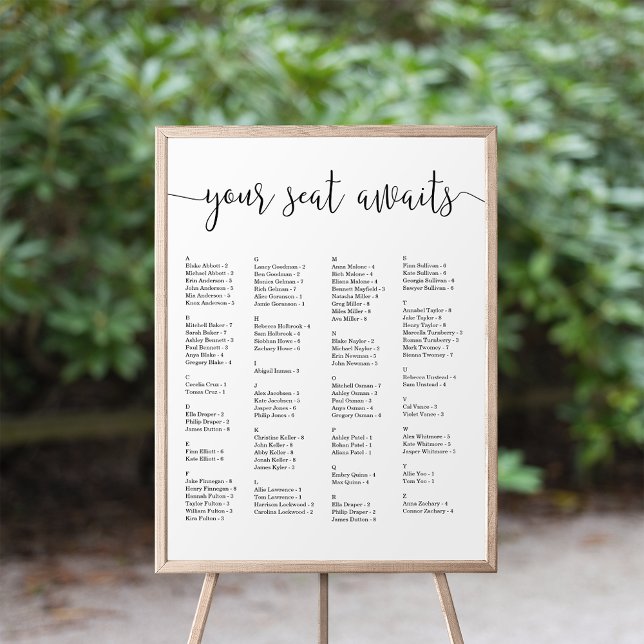 your seat awaits
A
Blake Abbott - 2
Michael Abbott - 2
Erin Anderson - 5
John Anderson - 5
Mia Anderson - 5
Knox Anderson - 5
B
Mitchell Baker - 7
Sarah Baker - 7
Ashley Bennett - 3
Paul Bennett - 3
Anya Blake - 4
Gregory Blake - 4
C
Cecelia Cruz - 1
Tomas Cruz - 1
D
Ella Draper - 2
Philip Draper - 2
James Dutton - 8
E
Finn Elliott - 6
Kate Elliott - 6
F
Jake Finnegan - 8
Henry Finnegan - 8
Hannah Fulton - 3
Taylor Fulton - 3
William Fulton - 3
Kira Fulton - 3
G
Lancy Goodman - 2
Ben Goodman - 2
Monica Gelman - 7
Rich Gelman - 7
Alice Goranson - 1
Jamie Goranson - 1
H
Rebecca Holbrook - 4
Sam Holbrook - 4
Siobhan Howe - 6
Zachary Howe - 6
I
Abigail Inman - 3
J
Alex Jacobsen - 5
Kate Jacobsen - 5
Jasper Jones - 6
Philip Jones - 6
K
Christine Keller - 8
John Keller - 8
Abby Keller - 8
Jonah Keller - 8
James Kyler - 2
L
Allie Lawrence - 1
Tom Lawrence - 1
Harrison Lockwood - 2
Carolina Lockwood - 2
M
Anna Malone - 4
Rich Malone - 4
Eliana Malone - 4
Bennett Mayfield - 3
Natasha Miller - 8
Greg Miller - 8
Miles Miller - 8
Ava Miller - 8
N
Blake Naylor - 2
Michael Naylor - 2
Erin Newman - 5
John Newman - 5
O
Mitchell Osman - 7
Ashley Osman - 2
Paul Osman - 3
Anya Osman - 4
Gregory Osman - 4
P
Ashley Patel - 1
Rohan Patel - 1
Aliana Patel - 1
Q
Embry Quinn - 4
Max Quinn - 4
R
Ella Draper - 2
Philip Draper - 2
James Dutton - 8
S
Finn Sullivan - 6
Kate Sullivan - 6
Georgia Sullivan - 6
Sawyer Sullivan - 6
T
Annabel Taylor - 8
Jake Taylor - 8
Henry Taylor - 8
Marcella Turnsberry - 3
Roman Turnsberry - 3
Mark Twomey - 7
Sienna Twomey - 7
U
Rebecca Unstead - 4
Sam Unstead - 4
V
Cal Vance - 3
Violet Vance - 3
W
Alex Whitmore - 5
Kate Whitmore - 5
Jasper Whitmore - 5
Y
Allie Yoo - 1
Tom Yoo - 1
Z
Anna Zachary - 4
Connor Zachary - 4